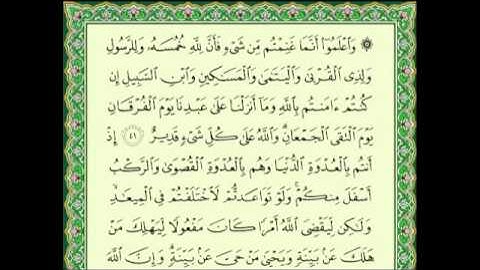 ۞ وَٱعْلَمُوٓا۟ أَنَّمَا غَنِمْتُم مِّن شَىْءٍ فَأَنَّ لِلَّهِ خُمُسَهُۥ وَلِلرَّسُولِ
وَلِذِى ٱلْقُرْبَىٰ وَٱلْيَتَـٰمَىٰ وَٱلْمَسَـٰكِينِ وَٱبْنِ ٱلسَّبِيلِ إِن
كُنتُمْ ءَامَنتُم بِٱللَّهِ وَمَآ أَنزَلْنَا عَلَىٰ عَبْدِنَا يَوْمَ ٱلْفُرْقَانِ
يَوْمَ ٱلْتَقَى ٱلْجَمْعَانِ ۗ وَٱللَّهُ عَلَىٰ كُلِّ شَىْءٍ قَدِيرٌ ٤١ إِذْ
أَنتُم بِٱلْعُدْوَةِ ٱلدُّنْيَا وَهُم بِٱلْعُدْوَةِ ٱلْقُصْوَىٰ وَٱلرَّكْبُ
أَسْفَلَ مِنكُمْ ۚ وَلَوْ تَوَاعَدتُّمْ لَٱخْتَلَفْتُمْ فِى ٱلْمِيعَـٰدِ ۙ
وَلَـٰكِن لِّيَقْضِىَ ٱللَّهُ أَمْرًا كَانَ مَفْعُولًا لِّيَهْلِكَ مَنْ
هَلَكَ عَنۢ بَيِّنَةٍ وَيَحْيَىٰ مَنْ حَىَّ عَنۢ بَيِّنَةٍ ۗ وَإِنَّ ٱللَّهَ